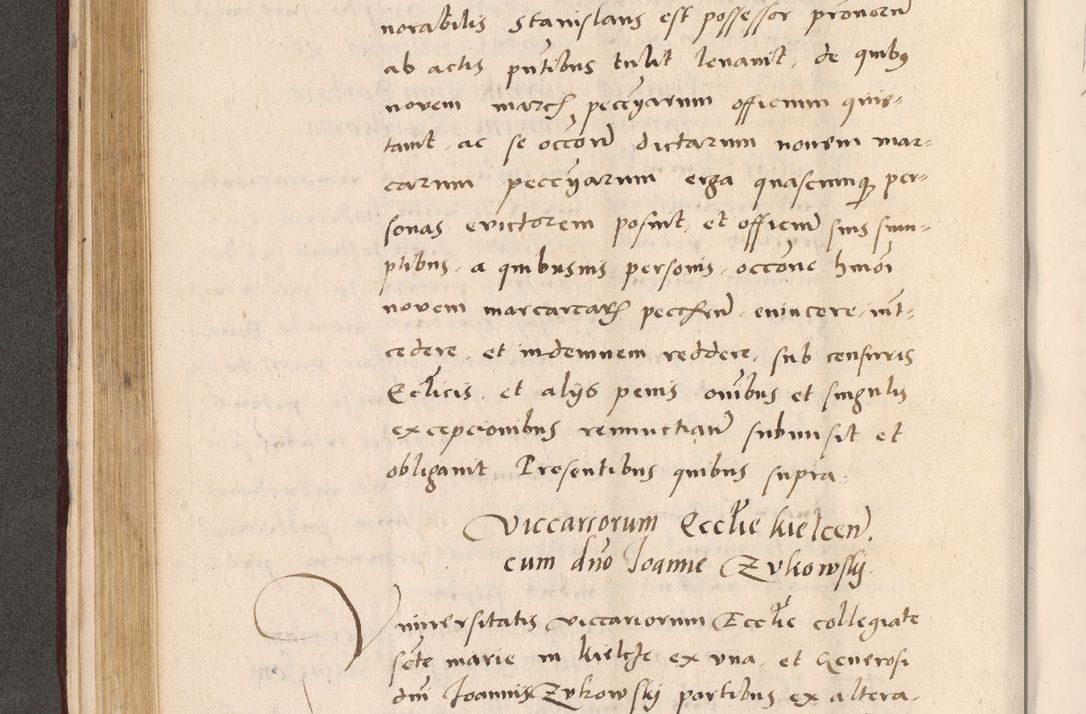 norabilis Stanislaus est possessor pronorum
ab actis pntibus tulit levavit, de quibus
novem march peccuarum officium quie-
tavit, ac se occone dictarum novem mar-
carum peccuarum erga quascumque per-
sonas evictorem posuit, et officium suis sum-
ptibus, a quibusvis personis, occone hmoi
novem marcarcarum pecchrum, evincere, int-
cedere, et indemnem reddere, sub censuris
Eclicis, et alys penis omibus et singulis
excepcionibus renunctian submisit et
obligavit Presentibus quibus supra.
Viccariorum Ecclie kielcen.
cum dno Joanne Zukowsky.
Universitatis viccariorum Ecclie collegiate
scte marie in kielcze ex una, et Generosi
dni Joannis Zukowskj partibus ex altera.